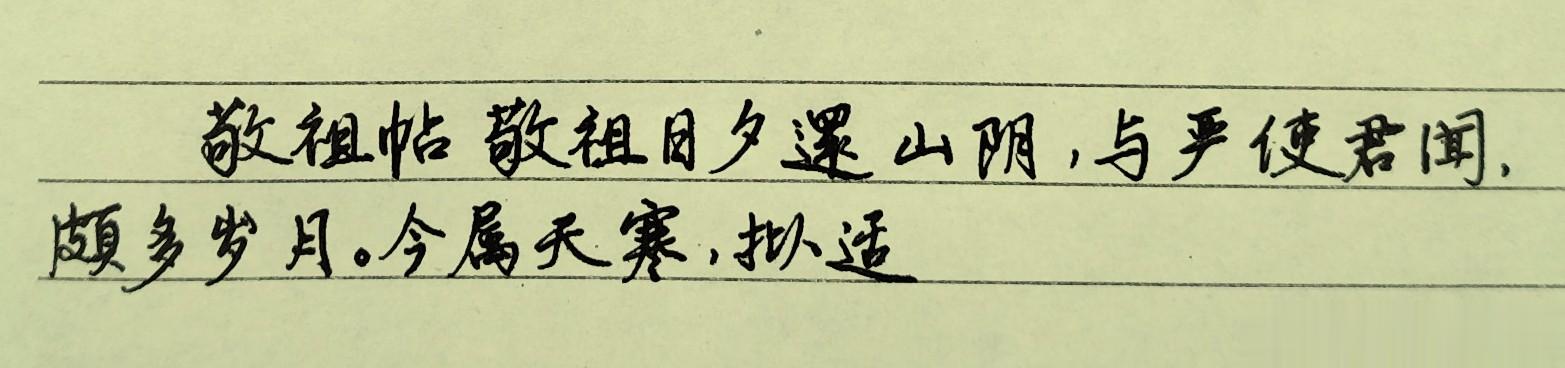 敬祖帖 敬祖日夕還山阴,与严使君闻,
頗多岁月。今属天寒,拟适